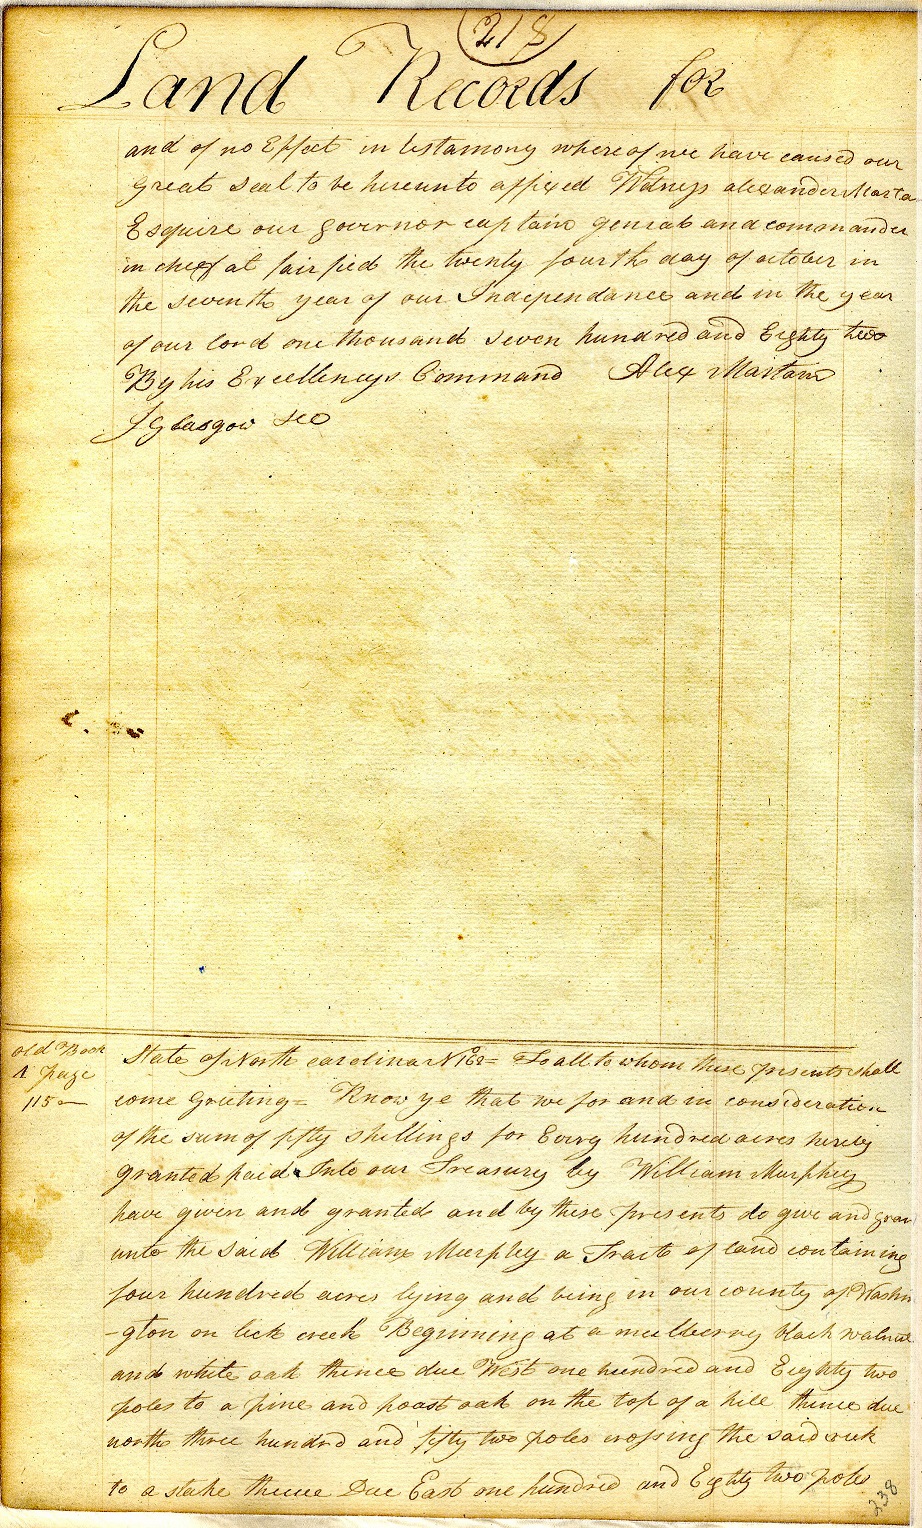 218
Land Records for
and of no Effect in testamony where of we have caused our
Great Seal to be hereunto affixed Witness alexander Marta
Esquire our governor captain genral and commander
in cheif at fairfied the twenty fourth day of october in
the seventh year of our Independance and in the year
of our lord one thousand seven hundred and Eighty two
By his Excellencys Command Alex Martain
J Glasgow Sec
old Book
A page
115
State of North carolina No 162 = To all to whom these presents shall
come Greeting = Know ye that we for and in consideration
of the sum of fifty shillings for Every hundred acres hereby
granted paid Into our Treasury by William Murphey
have given and granted and by these presents do give and gran
unto the said William Murphey a Tract of land containing
four hundred acres lying and being in our county of Washin
-gton on lick creek Beginning at a mulberry black walnut
and white oak thence due West one hundred and Eighty two
poles to a pine and poast oak on the top of a hill thence due
north three hundrd and fifty two poles crossing the said creek
to a stake thence Due East one hundred and Eighty two poles
238